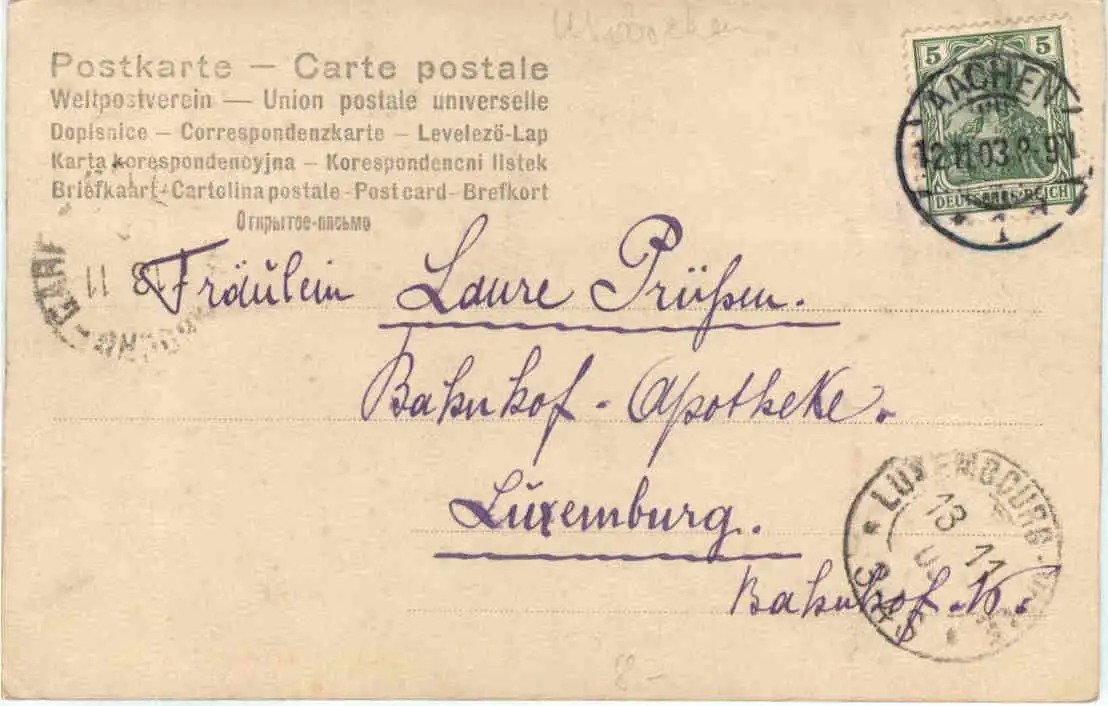 Postkarte – Carte postale
Weltpostverein — Union postale universelle
Dopisnice – Correspondenzkarte – Levelező-Lap
Karta korespondencyjna – Korespondencni listek
Briefkaart - Cartolina postale - Post card - Brefkort
Открытое-письмо
5 5
AACHEN
12.11.03 8-9V
1
DEUTSCHES REICH
11
Fräulein Laure Prüßen.
Bahnhof - Apotheke.
Luxemburg.
Bahnhof.
LUXEMBOURG
13 11
8.-